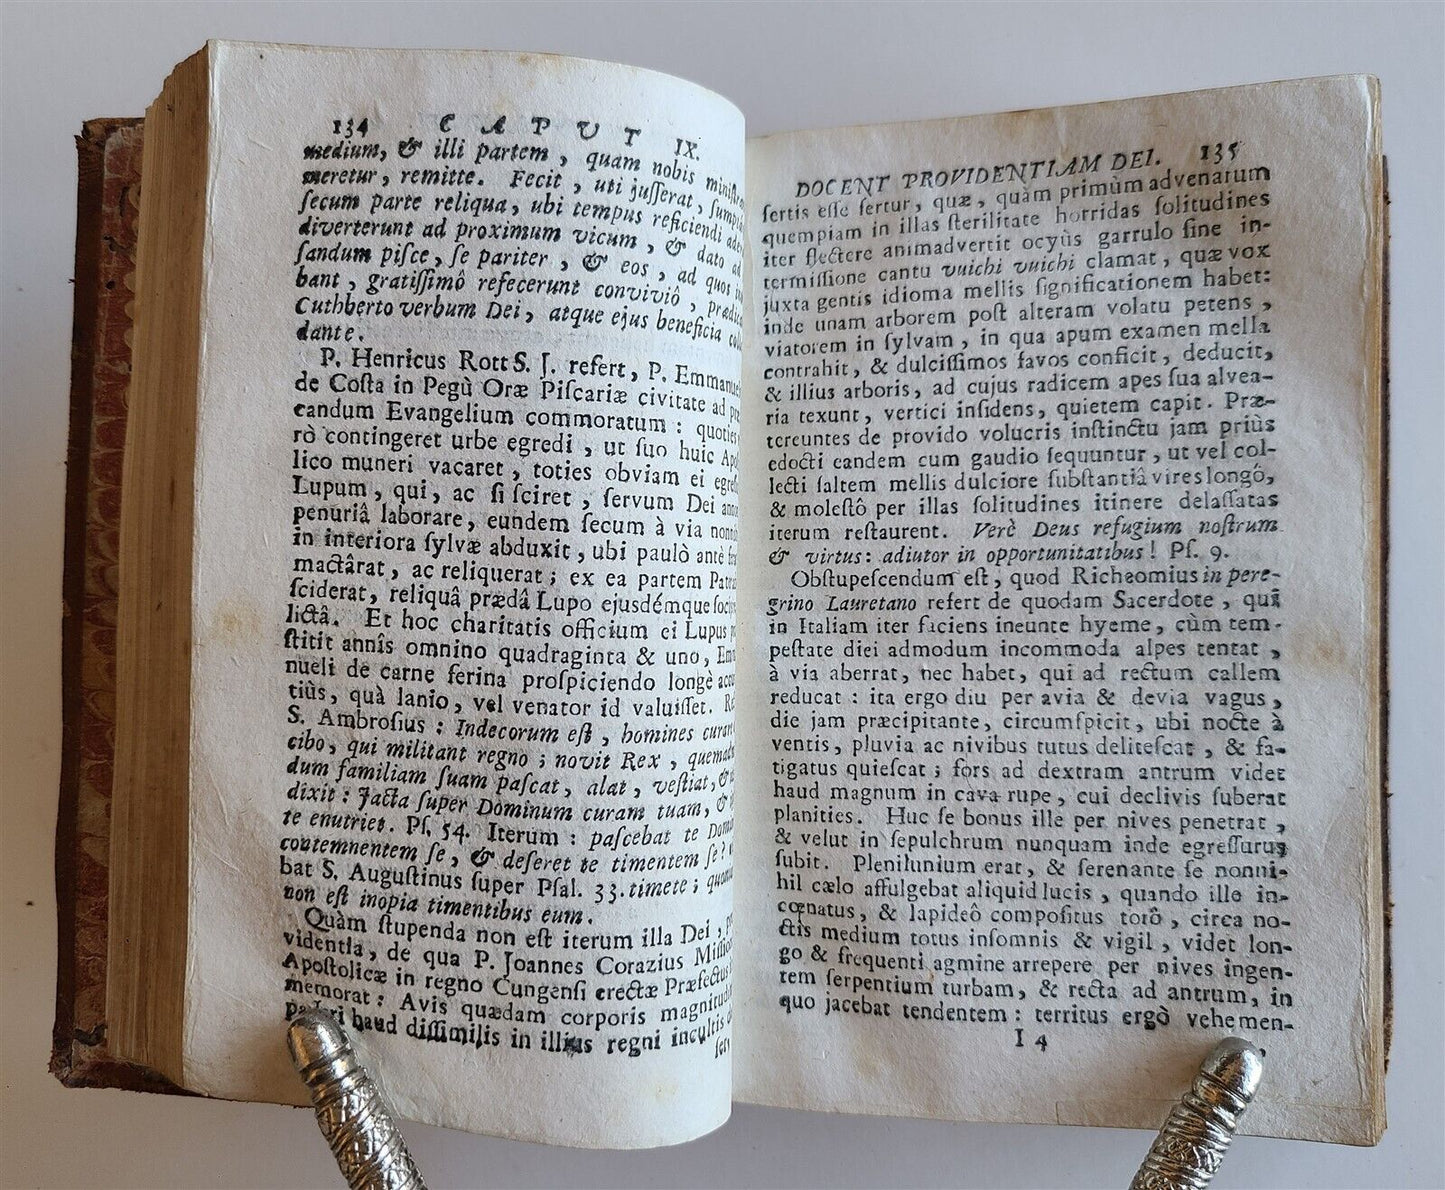 134 CAPUT IX.
medium, & illi partem, quam nobis
meretur, remitte. Fecit, uti juſſerat,
ſecum parte reliqua, ubi tempus reficiendi
diverterunt ad proximum vicum, & dato ad
ſandum piſce, ſe pariter, & eos, ad quos
bant, gratiſſimô refecerunt conviviô,
Cuthberto verbum Dei, atque ejus beneficia
dante.
P. Henricus Rott S. J. refert, P.
de Coſta in Pegù Oræ Piſcariæ civitate ad
candum Evangelium commoratum: quoties
rò contingeret urbe egredi, ut ſuo huic
lico muneri vacaret, toties obviam ei
Lupum, qui, ac ſi ſciret, ſervum Dei
penuriâ laborare, eundem ſecum à via
in interiora ſylvæ abduxit, ubi paulò antè
mactârat, ac reliquerat; ex ea partem
ſciderat, reliquâ prædâ Lupo ejusdémque
lictâ. Et hoc charitatis officium ei Lupus
ſtitit annîs omnino quadraginta & uno,
nueli de carne ferina proſpiciendo longè
tiùs, quà lanio, vel venator id valuiſſet.
S. Ambroſius: Indecorum eſt, homines
cibo, qui militant regno; novit Rex,
dum familiam ſuam paſcat, alat, veſtiat, &
dixit: Jacta ſuper Dominum curam tuam, &
te enutriet. Pſ. 54. Iterum: paſcebat te
contemnentem ſe, & deſeret te timentem ſe?
bat S. Auguſtinus ſuper Pſal. 33. timete;
non eſt inopia timentibus eum.
Quàm ſtupenda non eſt iterum illa Dei,
videntia, de qua P. Joannes Corazius
Apoſtolicæ in regno Cungenſi erectæ
memorat: Avis quædam corporis
haud diſſimilis in illius regni
DOCENT PROVIDENTIAM DEI. 135
ſertis eſſe fertur, quæ, quàm primùm advenarum
quempiam in illas ſterilitate horridas ſolitudines
iter flectere animadvertit ocyùs garrulo ſine in-
termiſſione cantu vuichi vuichi clamat, quæ vox
juxta gentis idioma mellis ſignificationem habet:
inde unam arborem poſt alteram volatu petens,
viatorem in ſylvam, in qua apum examen mella
contrahit, & dulciſſimos favos conficit, deducit,
& illius arboris, ad cujus radicem apes ſua alvea-
ria texunt, vertici inſidens, quietem capit. Præ-
tereuntes de provido volucris inſtinctu jam priùs
edocti eandem cum gaudio ſequuntur, ut vel col-
lecti ſaltem mellis dulciore ſubſtantiâ vires longô,
& moleſtô per illas ſolitudines itinere delaſſatas
iterum reſtaurent. Verè Deus refugium noſtrum
& virtus: adiutor in opportunitatibus! Pſ. 9.
Obſtupeſcendum eſt, quod Richeomius in pere-
grino Lauretano refert de quodam Sacerdote, qui
in Italiam iter faciens ineunte hyeme, cùm tem-
peſtate diei admodum incommoda alpes tentat,
à via aberrat, nec habet, qui ad rectum callem
reducat: ita ergo diu per avia & devia vagus,
die jam præcipitante, circumſpicit, ubi nocte à
ventis, pluvia ac nivibus tutus deliteſcat, & fa-
tigatus quieſcat; fors ad dextram antrum videt
haud magnum in cava rupe, cui declivis ſuberat
planities. Huc ſe bonus ille per nives penetrat,
& velut in ſepulchrum nunquam inde egreſſurus
ſubit. Plenilunium erat, & ſerenante ſe nonni-
hil cælo affulgebat aliquid lucis, quando ille in-
cœnatus, & lapideô compoſitus torô, circa no-
ctis medium totus inſomnis & vigil, videt lon-
go & frequenti agmine arrepere per nives ingen-
tem ſerpentium turbam, & recta ad antrum, in
quo jacebat tendentem: territus ergò vehemen-
I 4